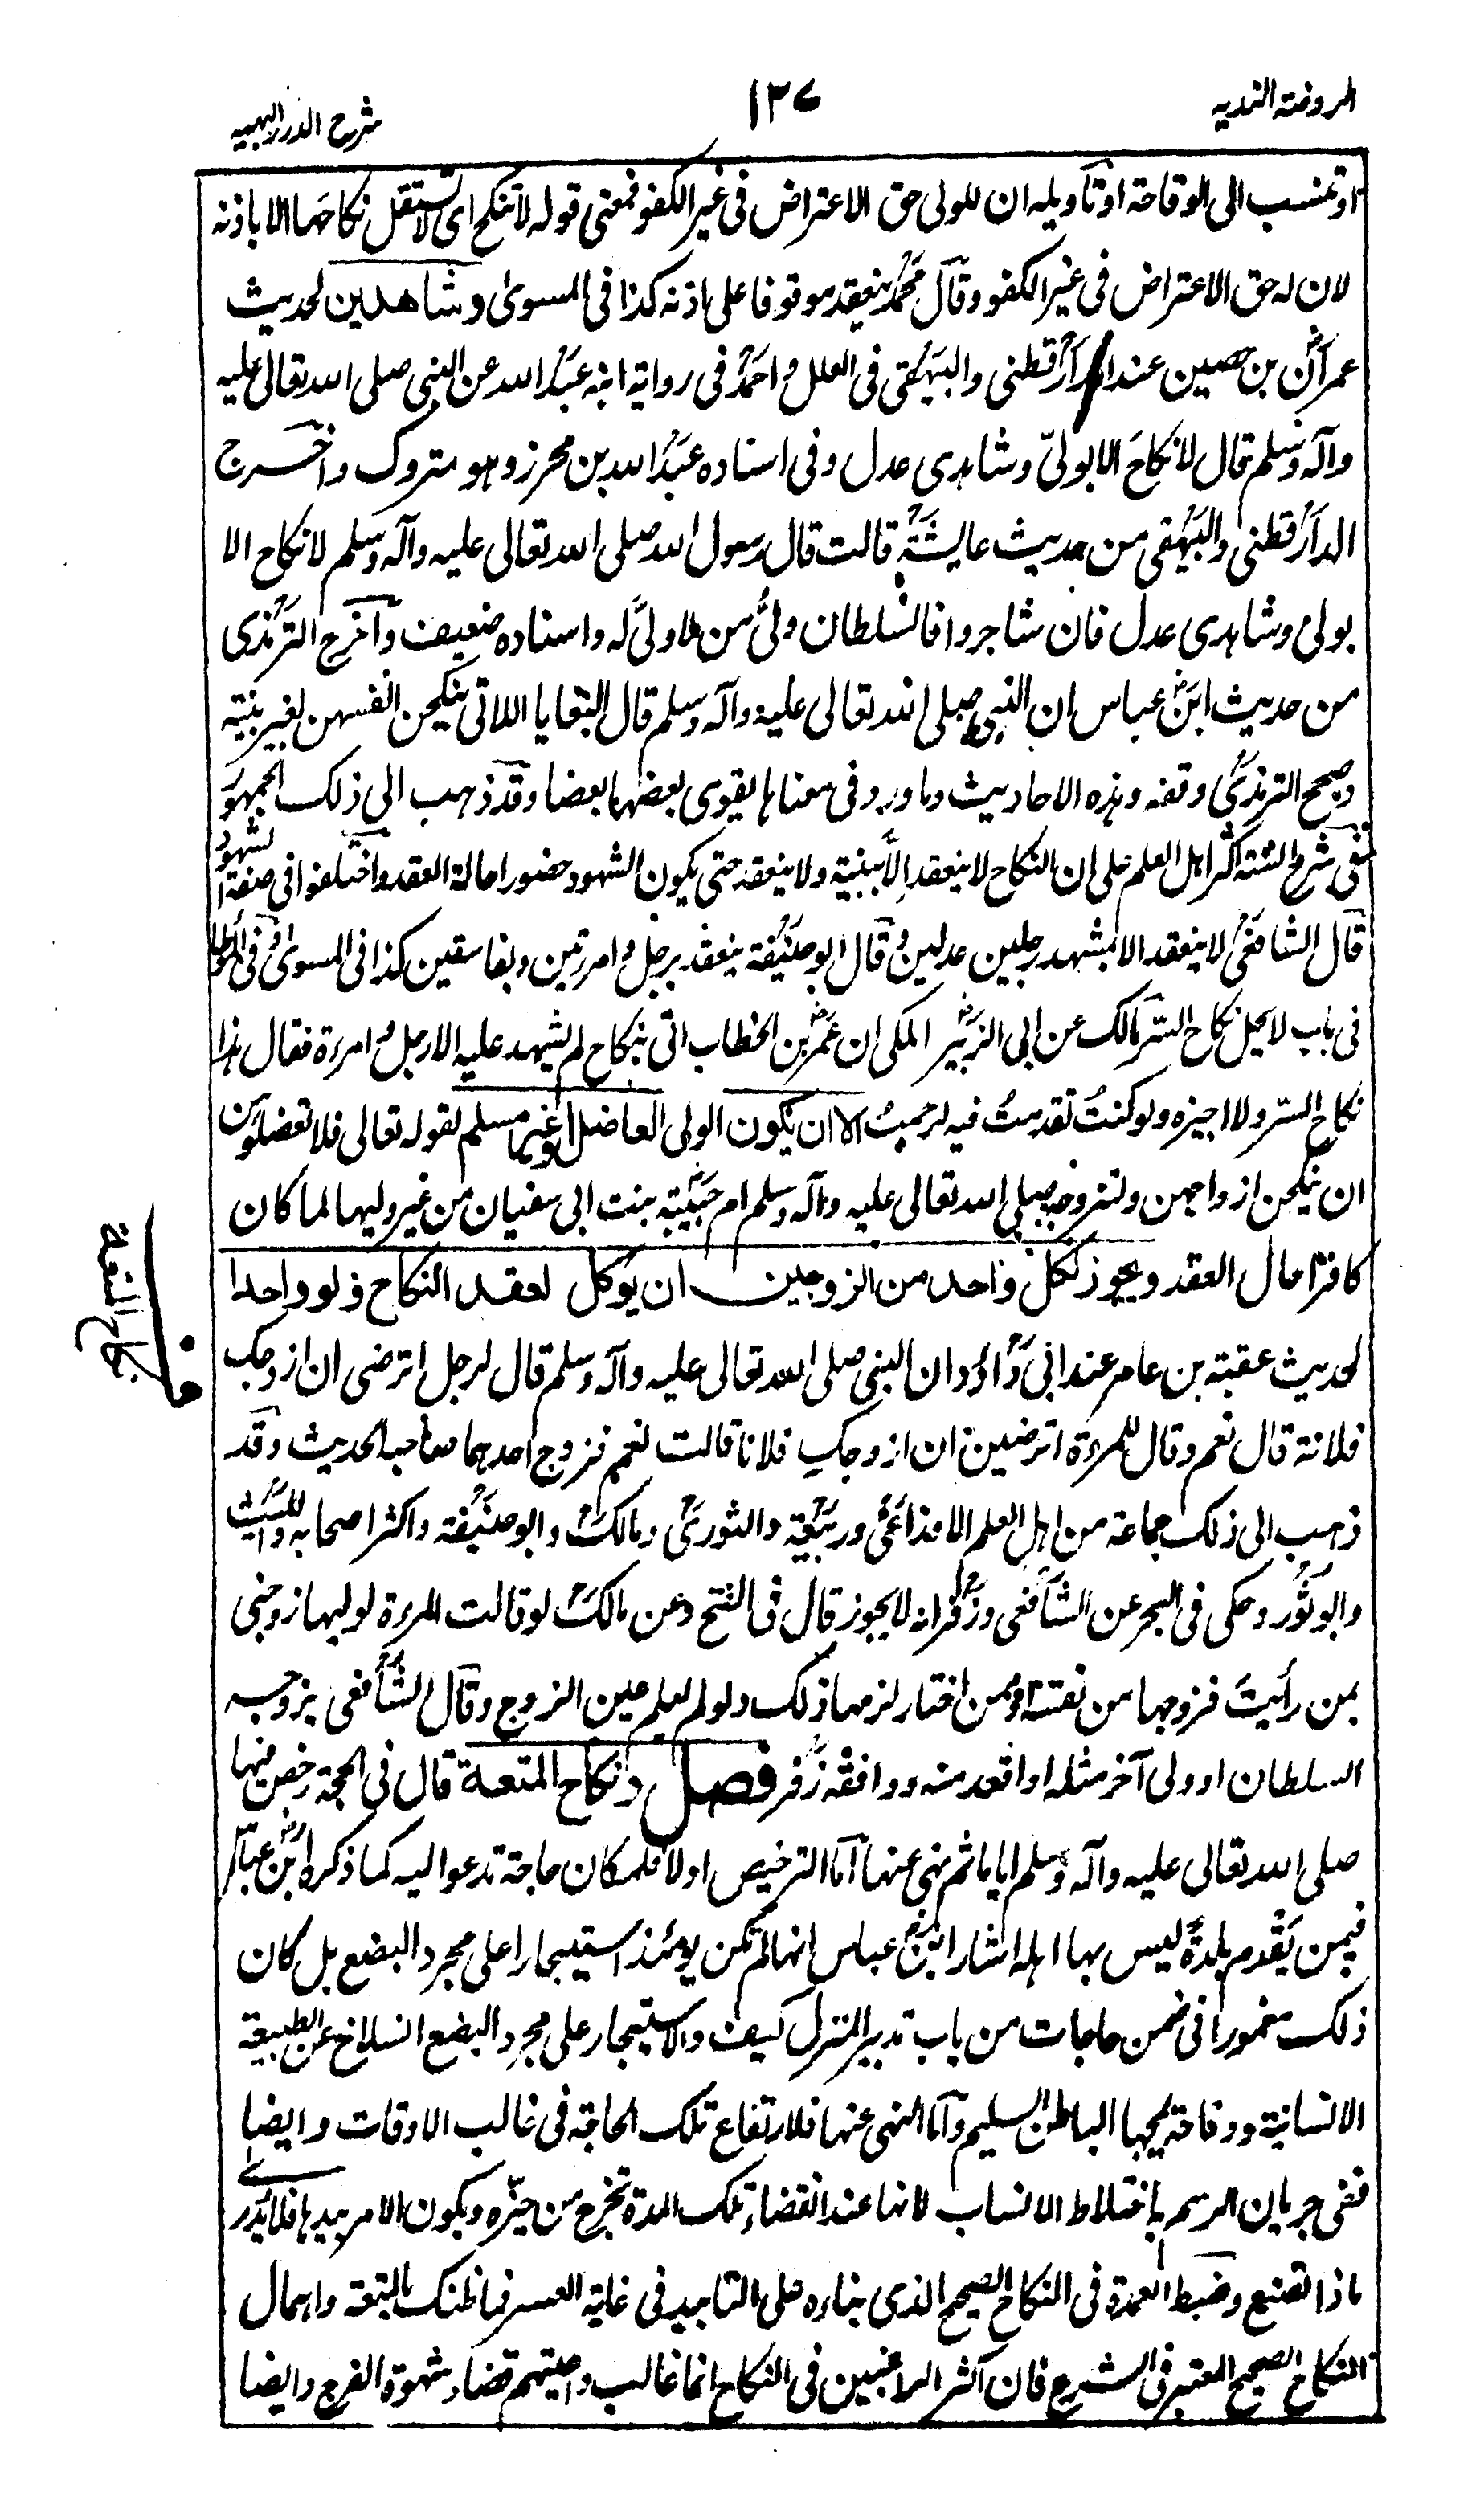 الروضة الندية
١٣٧
شرح الدرر البهية
او تنسب الى الوقاحة او تاويله ان للولى حق الاعتراض فى غير الكفو فمعنى قوله لا تنكح اى لا تستقل نكاحها الا باذنه
لان له حق الاعتراض فى غير الكفو وقال محمد ينعقد موقوفا على اذنه كذا فى المسوى وشاهدين لحديث
عمران بن حصين عند الدارقطنى والبيهقى فى العلل واحمد فى رواية ابنه عبد الله عن النبى صلى الله تعالى عليه
وآله وسلم قال لا نكاح الا بولىّ وشاهدى عدل وفى اسناده عبد الله بن محرز وهو متروك واخرج
الدارقطنى والبيهقى من حديث عائشة قالت قال رسول الله صلى الله تعالى عليه وآله وسلم لا نكاح الا
بولى وشاهدى عدل فان تشاجروا فالسلطان ولىُّ من لا ولىَّ له واسناده ضعيف واخرج الترمذى
من حديث ابن عباس ان النبى صلى الله تعالى عليه وآله وسلم قال البغايا اللاتى ينكحن انفسهن لغير بينة
وصحح الترمذى وقفه وهذه الاحاديث وما ورد فى معناها يقوى بعضها بعضا وقد ذهب الى ذلك الجمهور
ففى شرح السنة اكثر اهل العلم على ان النكاح لا ينعقد الا ببينة ولا ينعقد حتى يكون الشهود حضورا حالة العقد واختلفوا فى صفة الشهود
قال الشافعى لا ينعقد الا بمشهد رجلين عدلين وقال ابو حنيفة ينعقد برجل وامرءتين وبفاسقين كذا فى المسوى وفى الموطا
فى باب لا يحل نكاح السر مالك عن ابى الزبير المكى ان عمر بن الخطاب اتى بنكاح لم يشهد عليه الا رجل وامرءة فقال هذا
نكاح السر ولا اجيزه ولو كنتُ تقدمتُ فيه لرجمتُ الا ان يكون الولى العاضل او غير مسلم لقوله تعالى فلا تعضلوهن
ان ينكحن ازواجهن ولتزوجه صلى الله تعالى عليه وآله وسلم ام حبيبة بنت ابى سفيان من غير وليها لما كان
كافرا حال العقد ويجوز لكل واحد من الزوجين ان يوكل لعقد النكاح ولو واحدا
لحديث عقبة بن عامر عند ابى داؤد ان النبى صلى الله تعالى عليه وآله وسلم قال لرجل اترضى ان ازوجك
فلانة قال نعم وقال للمرءة اترضين ان ازوجكِ فلانا قالت نعم فزوج احدهما صاحبه الحديث وقد
ذهب الى ذلك جماعة من اهل العلم الاوزاعى وربيعة والثورى ومالك وابو حنيفة واكثر اصحابه والليث
وابو ثور وحكى فى البحر عن الشافعى وزفر انه لا يجوز قال فى الفتح وعن مالك لو قالت المرءة لوليها زوجنى
بمن رأيتَ فزوجها من نفسه او ممن اختار لزمها ذلك ولو لم يعلم عين الزوج وقال الشافعى يزوجه
السلطان او ولى آخر مثله او اقعد منه ووافقه زفر فصل ونكاح المتعة قال فى الحجة رخص فيها
صلى الله تعالى عليه وآله وسلم اياما ثم نهى عنها اما الترخيص اولا فلمكان حاجة تدعو اليه كما ذكره ابن عباس
فيمن يَقْدم بلدةً ليس بها اهله اشار ابن عباس انها لم تكن يومئذ استيجارا على مجرد البضع بل كان
ذلك مغمورا فى ضمن حاجات من باب تدبير المنزل كيف والاستيجار على مجرد البضع انسلاخ عن الطبيعة
الانسانية ووقاحة يمجها الباطن السليم واما النهى عنها فلارتفاع تلك الحاجة فى غالب الاوقات وايضا
ففى جريان الرسم به اختلاط الانساب لانها عند انقضاء تلك المدة تخرج من حيّزه ويكون الامر بيدها فلا يدرى
ماذا تصنع وضبط العدة فى النكاح الصحيح الذى بناءه على التابيد فى غاية العسر فما ظنك بالمتعة واهمال
النكاح الصحيح المعتبر فى الشرع فان اكثر الراغبين فى النكاح انما غالب داعيتهم قضاء شهوة الفرج وايضا